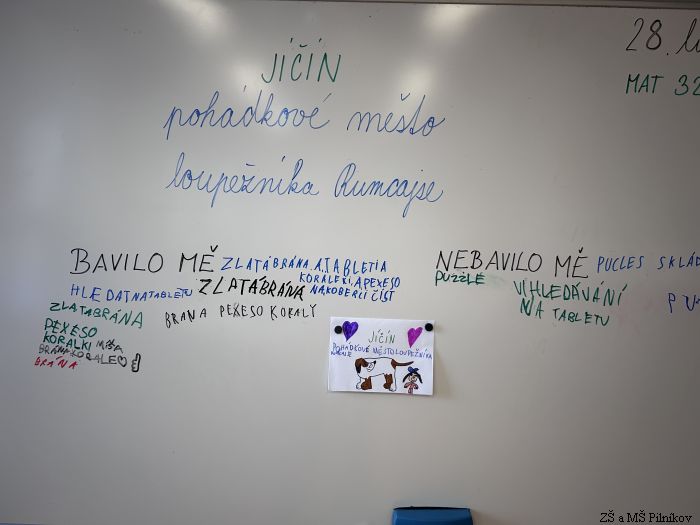 28.
MAT 32
JIČÍN
pohádkové město
loupežníka Rumcajse
BAVILO MĚ
ZLATÁBRÁNA. A TABLETIA
KORÁLEKI. A PEXESO
HLEDATNATABLETU
ZLATÁBRÁNA
NAKOBERCI ČÍST
ZLATABRÁNA
BRANA PEXESO KORALY
PEXESO
KORALKI MÍŠA
BRÁNA KORALE
BRÁNA
NEBAVILO MĚ
PUCLES SKLÁD
PUZZLE
VIHLEDÁVÁNÍ
NA TABLETU
JIČÍN
POHÁDKOVÉ MĚSTO LOUPEŽNÍKA
ZŠ a MŠ Pilníkov